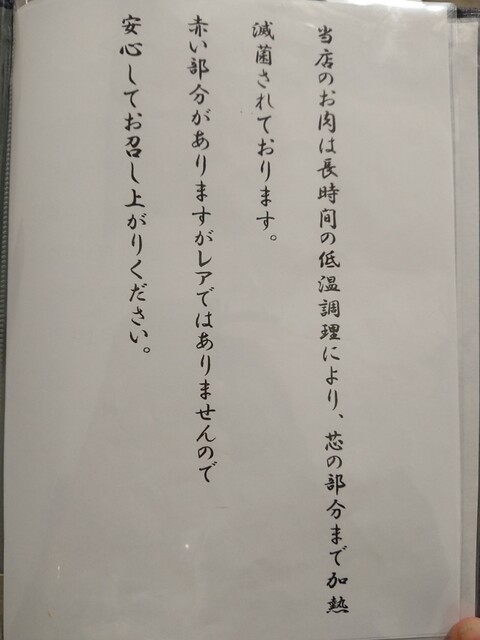 当店のお肉は長時間の低温調理により、芯の部分まで加熱
滅菌されております。
赤い部分がありますがレアではありませんので
安心してお召し上がりください。